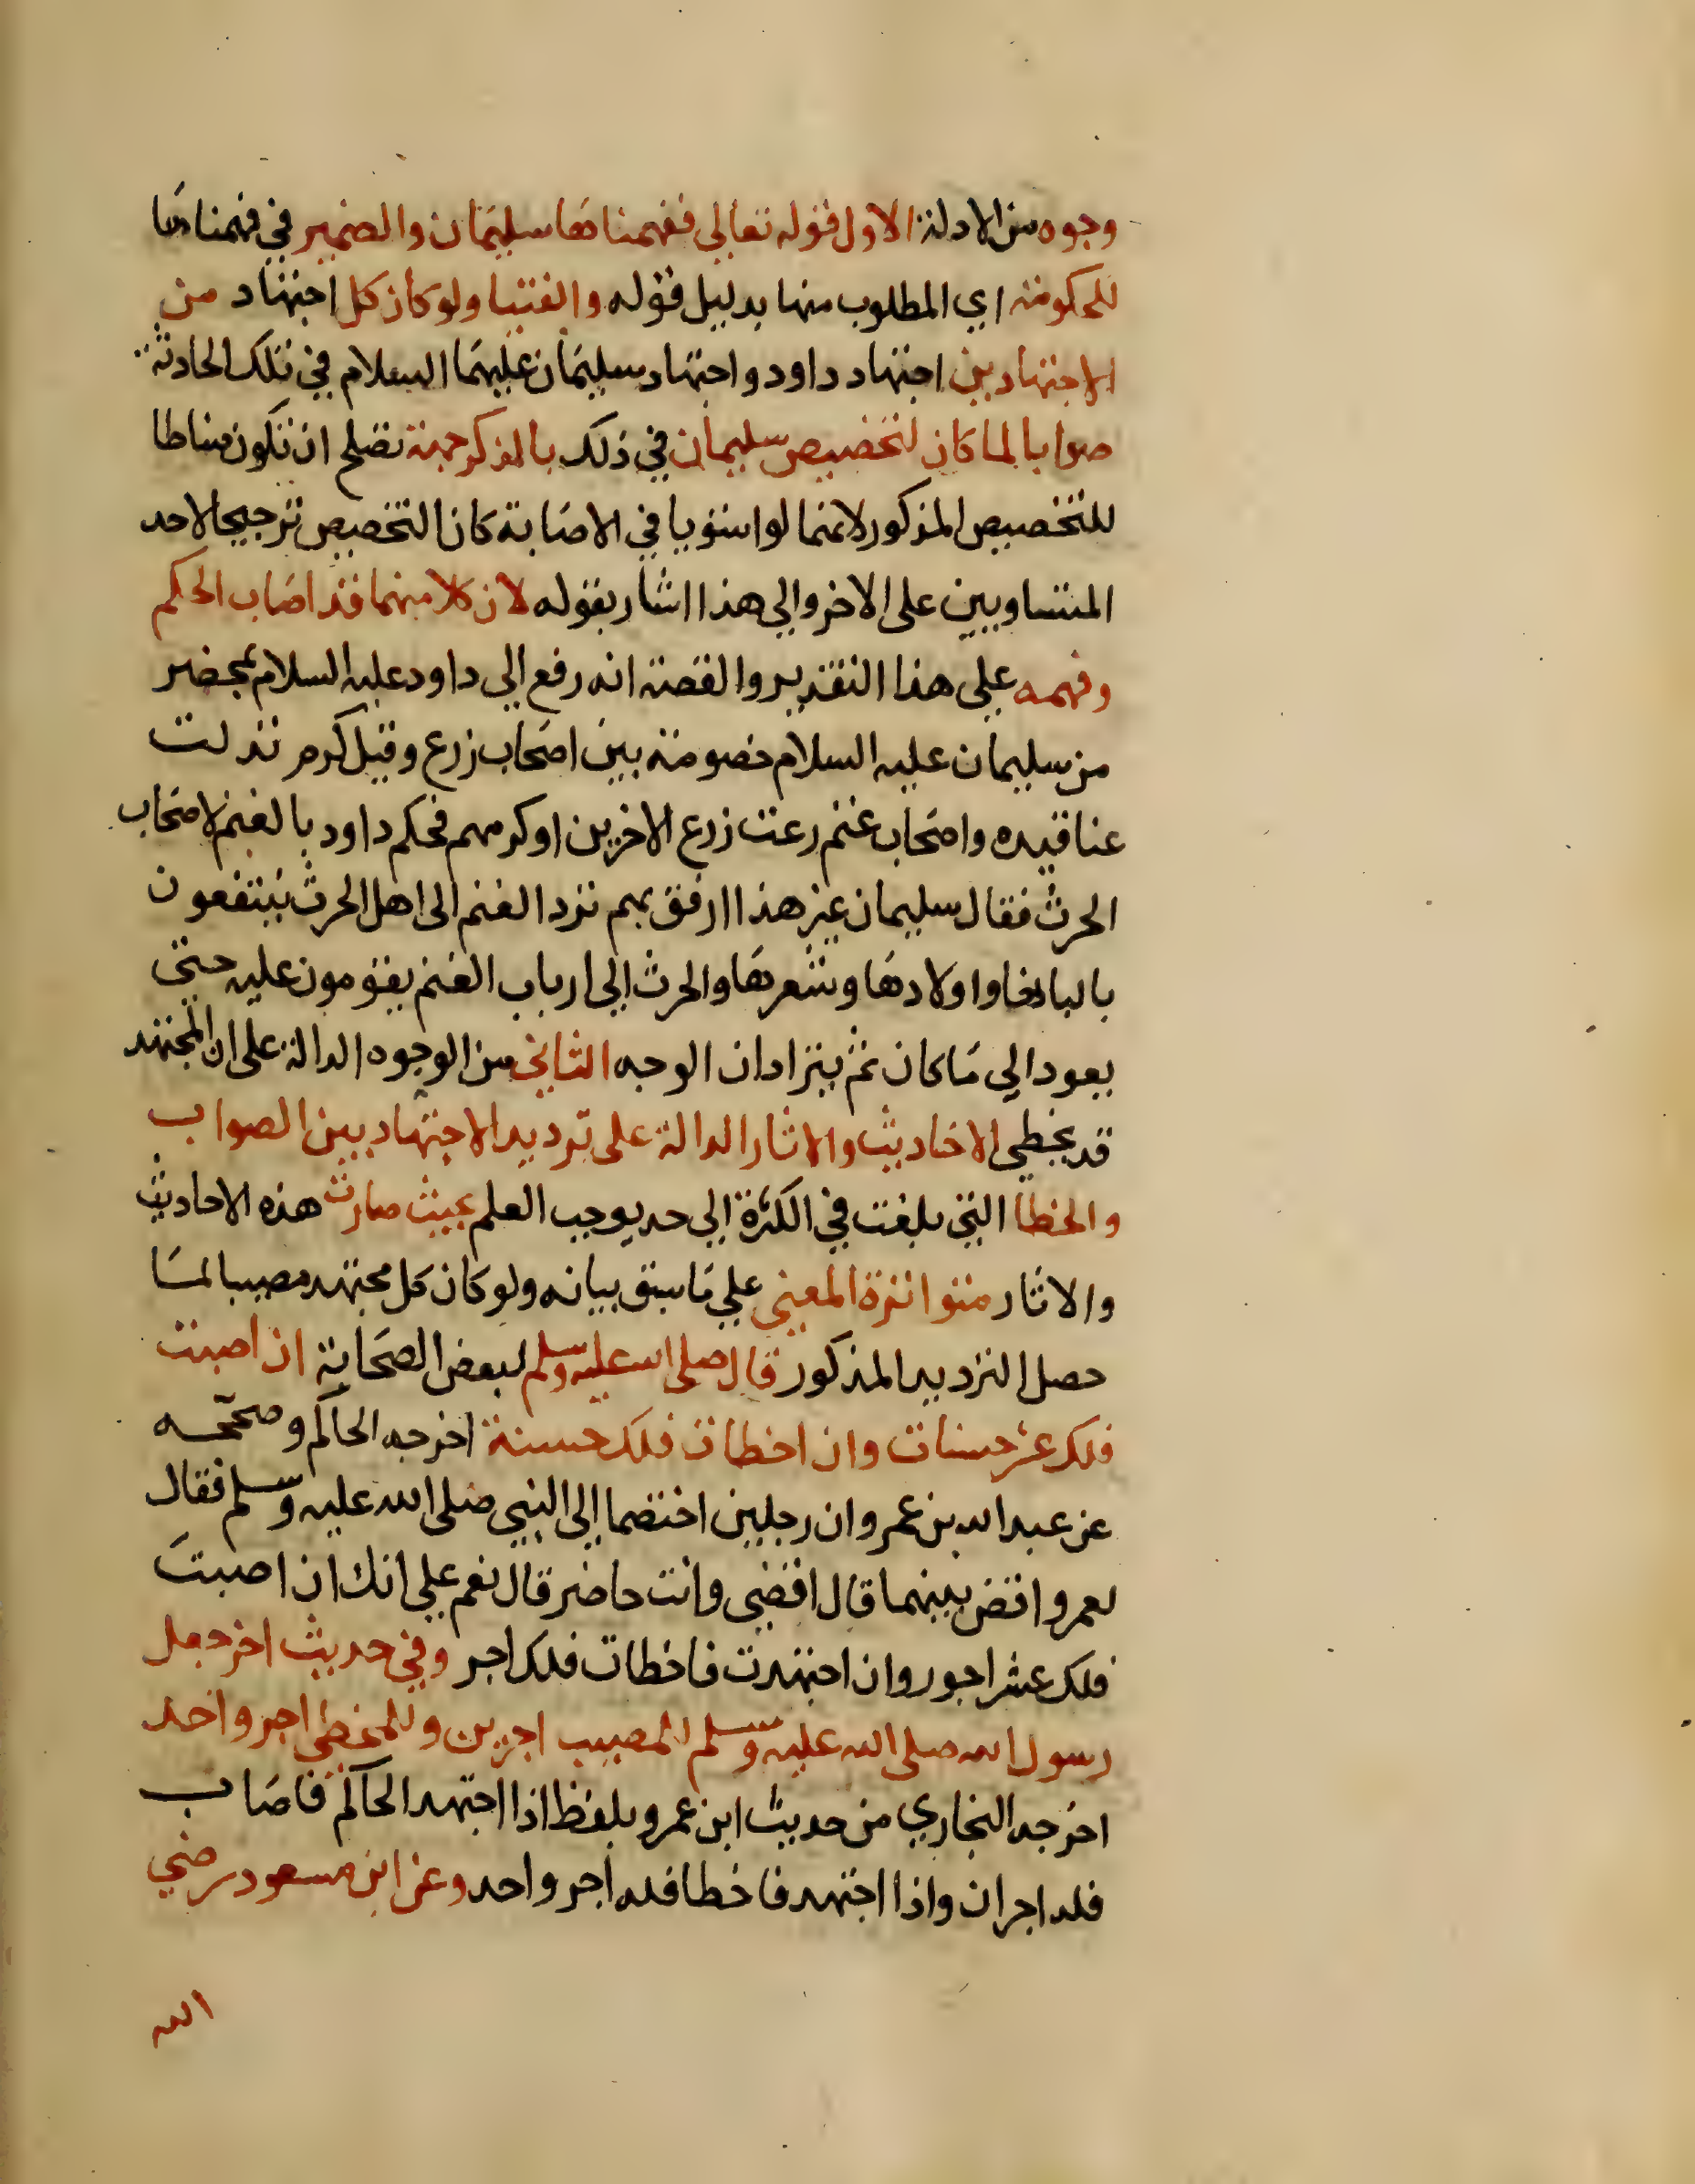 وجوه من الادلة الاول قوله تعالي ففهمناها سليمان والضمير في فهمناها
للحكومة اي المطلوب منها بدليل قوله والفتيا ولو كان كل اجتهاد من
الاجتهادين اجتهاد داود واجتهاد سليمان عليهما السلام في تلك الحادثة
صوابا لما كان لتخصيص سليمان في ذلك بالذكر جهة تصلح ان تكون مناطا
للتخصيص المذكور لانهما لو استويا في الاصابة كان التخصيص ترجيحا لاحد
المتساويين على الاخر والي هذا اشار بقوله لان كلا منهما قد اصاب الحكم
وفهمه علي هذا التقدير والقصة انه رفع الي داود عليه السلام بمحضر
من سليمان عليه السلام خصومة بين اصحاب زرع وقيل كرم تدلت
عناقيده واصحاب غنم رعت زرع الاخرين او كرمهم فحكم داود بالغنم لاصحاب
الحرث فقال سليمان غير هذا ارفق بهم ترد الغنم الى اهل الحرث ينتفعون
بالبانها واولادها وشعرها والحرث الي ارباب الغنم يقومون عليه حتى
يعود الي ما كان ثم يترادان الوجه الثاني من الوجوه الدالة على ان المجتهد
قد يخطي الاحاديث والاثار الدالة على ترديد الاجتهاد بين الصواب
والخطا التي بلغت في الكثرة الي حد يوجب العلم بحيث صارت هذه الاحاديث
والاثار متواترة المعني علي ما سبق بيانه ولو كان كل مجتهد مصيبا لما
حصل الترديد المذكور قال صلى الله عليه وسلم لبعض الصحابة ان اصبت
فلك عشر حسنات وان اخطات فلك حسنة اخرجه الحاكم وصححه
عن عبد الله بن عمرو ان رجلين اختصما إلى النبي صلى الله عليه وسلم فقال
لعمرو اقض بينهما قال اقضي وانت حاضر قال نعم علي انك ان اصبت
فلك عشر اجور وان اجتهدت فاخطات فلك اجر وفي حديث اخر جعل
رسول الله صلى الله عليه وسلم للمصيب اجرين وللمخطي اجر واحد
اخرجه البخاري من حديث ابن عمرو بلفظ اذا اجتهد الحاكم فاصاب
فله اجران واذا اجتهد فاخطا فله اجر واحد وعن ابن مسعود رضي
الله